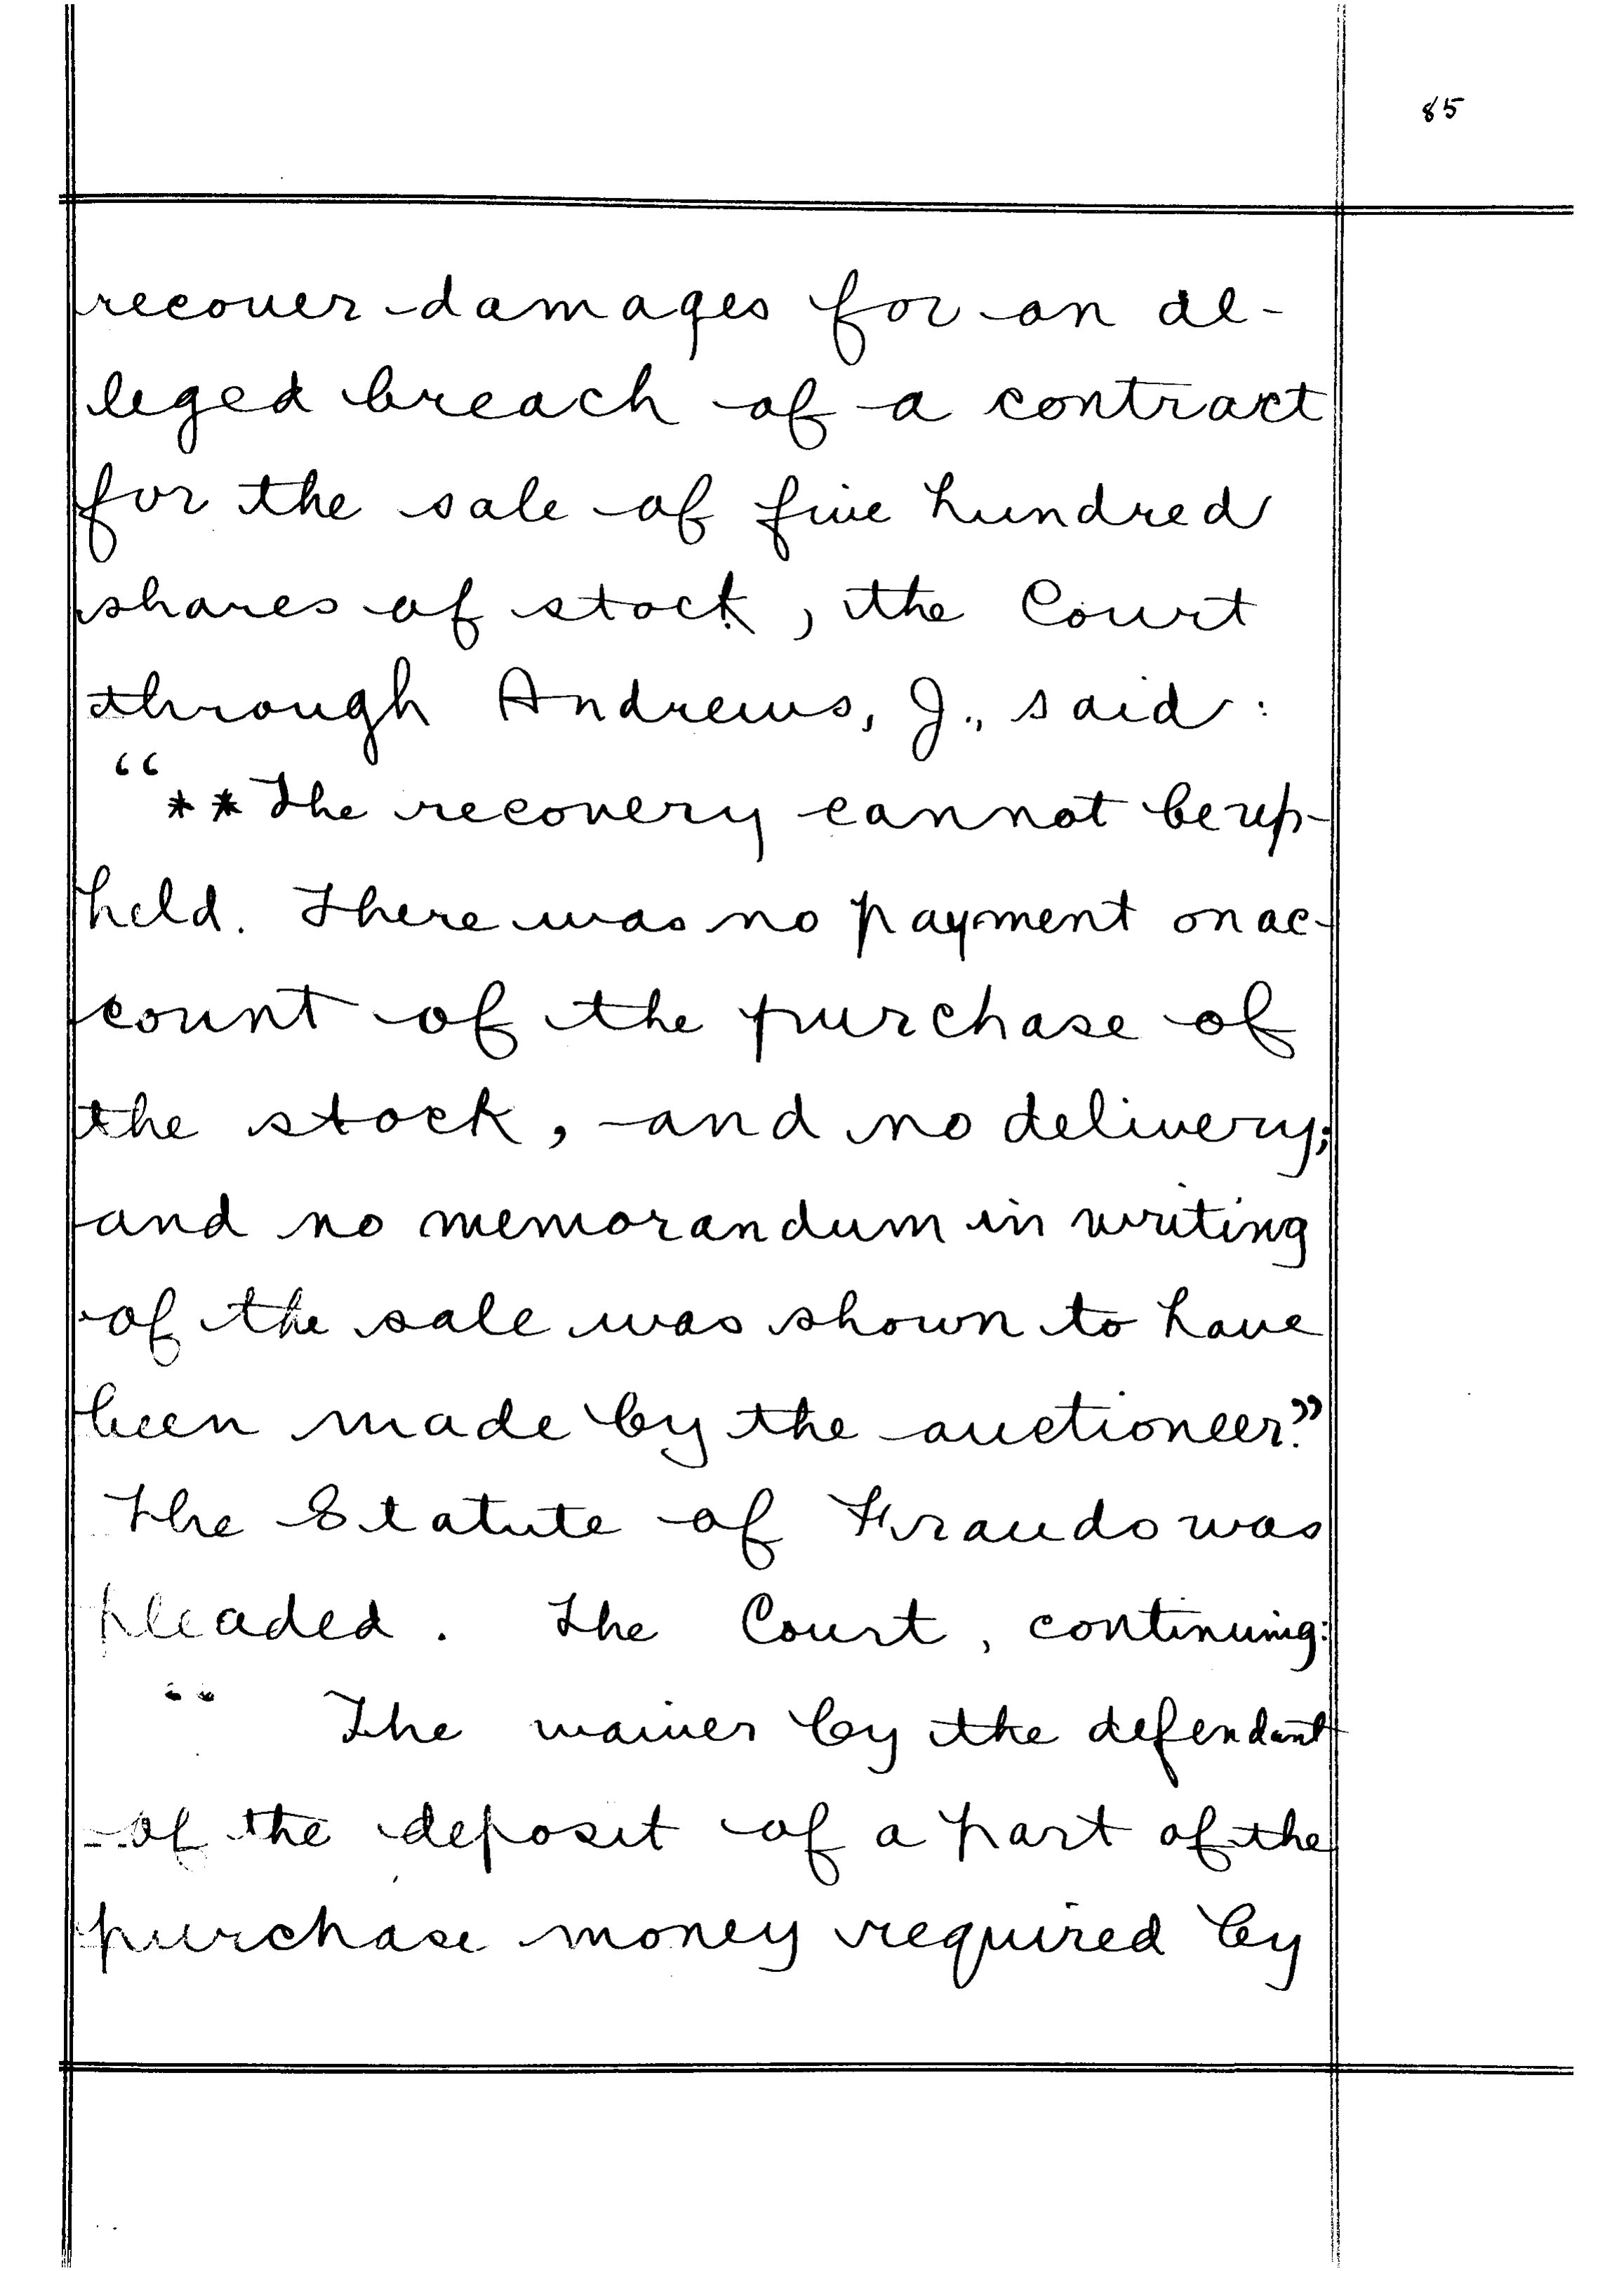 85
recover damages for an al-
leged breach of a contract
for the sale of five hundred
shares of stock, the Court
through Andrews, J., said:
"**The recovery cannot be up-
held. There was no payment on ac-
count of the purchase of
the stock, and no delivery;
and no memorandum in writing
of the sale was shown to have
been made by the auctioneer."
The Statute of Frauds was
pleaded. The Court, continuing:
" The waiver by the defendant
of the deposit of a part of the
purchase money required by